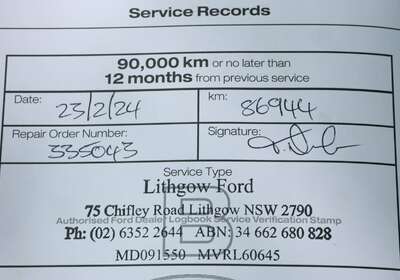 Service Records
90,000 km or no later than
12 months from previous service
Date: 23/2/24 km: 86944
Repair Order Number: 335043 Signature:
Service Type
B
Lithgow Ford
75 Chifley Road Lithgow NSW 2790
Authorised Ford Dealer Logbook Service Verification Stamp
Ph: (02) 6352 2644 ABN: 34 662 680 828
MD091550 MVRL60645